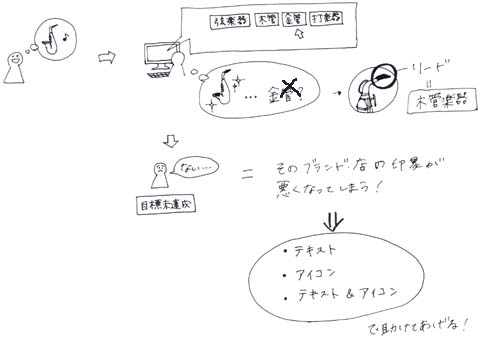 弦楽器 木管 金管 打楽器
… 金管?
リード
=
木管楽器
ない…
目標未達成
= そのブランド・店の印象が
悪くなってしまう!
・テキスト
・アイコン
・テキスト & アイコン
で助けてあげる!